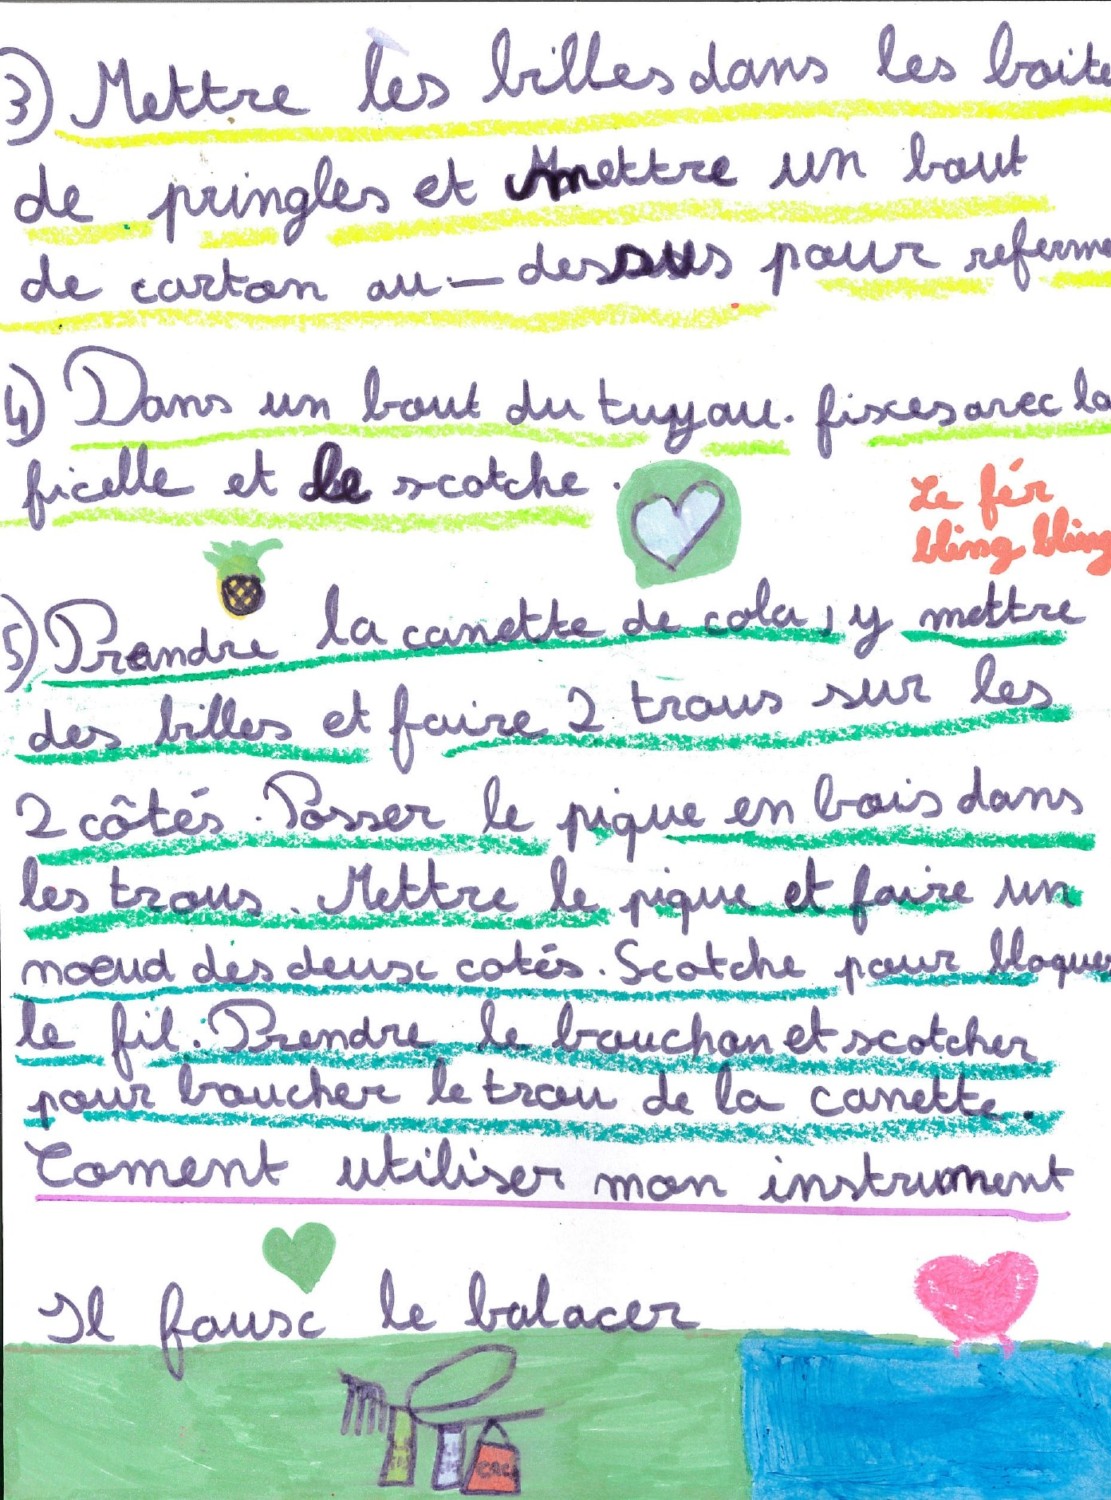 3) Mettre les billes dans les boite
de pringles et mettre un bout
de carton au-dessus pour referme
4) Dans un bout du tuyau. fixes avec la
ficelle et le scotche.
Le fér
bling bling
5) Prendre la canette de cola, y mettre
des billes et faire 2 trous sur les
2 côtés. Passer le pique en bois dans
les trous. Mettre le pique et faire un
nœud des deux cotés. Scotche pour bloquer
le fil. Prendre le bouchon et scotcher
pour boucher le trou de la canette.
Coment utiliser mon instrument
Il faux le balacer